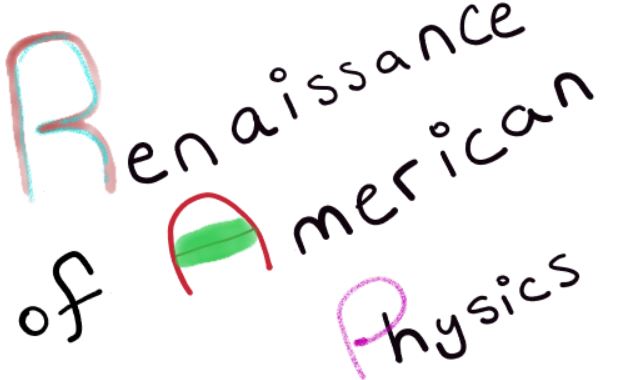 Renaissance
of American
Physics